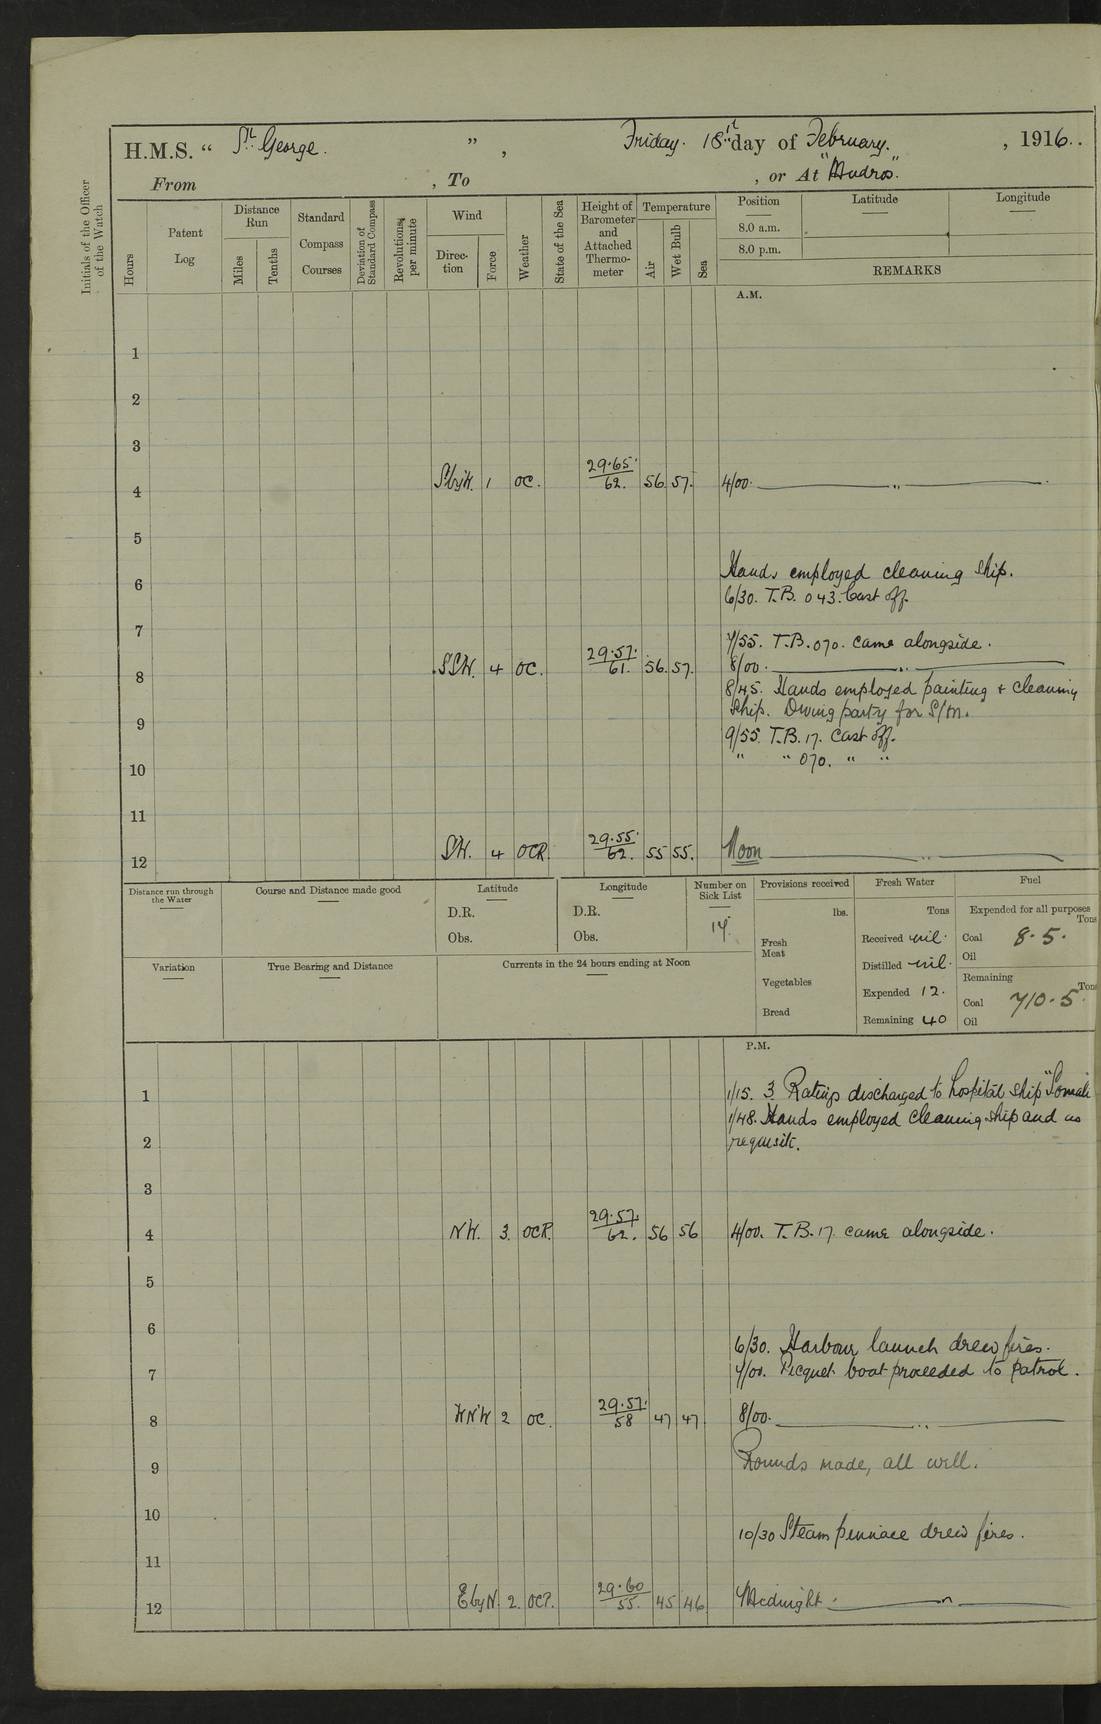 H.M.S. “ St. George. ” , Friday. 18th day of February. , 1916..
From , To , or At "Mudros."
Initials of the Officer of the Watch
Hours
Patent Log
Distance Run
Miles
Tenths
Standard Compass Courses
Deviation of Standard Compass
Revolutions per minute
Wind
Direction
Force
Weather
State of the Sea
Height of Barometer and Attached Thermometer
Temperature
Air
Wet Bulb
Sea
Position Latitude Longitude
8.0 a.m.
8.0 p.m.
REMARKS
A.M.
1
2
3
4 SbyW. 1 OC. 29.65. 62. 56 57. 4/00. ——— „ ———
5
Hands employed cleaning ship.
6
6/30. T.B. 043. Cast off.
7
7/55. T.B. 070. came alongside.
8 SSW. 4 OC. 29.57. 61. 56. 57. 8/00. ——— „ ———
8/45. Hands employed painting & cleaning
ship. Diving party for S/M.
9
9/55. T.B. 17. Cast off.
" " 070. " "
10
11
12 SW. 4 OCR. 29.55. 62. 55 55. Noon ——— „ ———
Distance run through the Water
Course and Distance made good
Latitude
D.R.
Obs.
Longitude
D.R.
Obs.
Number on Sick List
14.
Provisions received
lbs.
Fresh Meat
Vegetables
Bread
Fresh Water
Tons
Received nil.
Distilled nil.
Expended 12.
Remaining 40
Fuel
Expended for all purposes
Tons
Coal 8.5.
Oil
Remaining
Tons
Coal 710.5.
Oil
Variation
True Bearing and Distance
Currents in the 24 hours ending at Noon
P.M.
1 1/15. 3 Ratings discharged to hospital ship "Somali
1/48. Hands employed cleaning ship and as
2 requisite.
3
4 NW. 3. OCR. 29.57. 62. 56 56 4/00. T.B. 17. came alongside.
5
6
6/30. Harbour launch drew fires.
7 7/00. Picquet boat proceeded to patrol.
8 WNW 2 OC. 29.57. 58 47 47 8/00. ——— „ ———
9 Rounds made, all well.
10
10/30 Steam pinnace drew fires.
11
12 EbyN. 2. 29.60 55. 45 46 Midnight. ——— „ ———